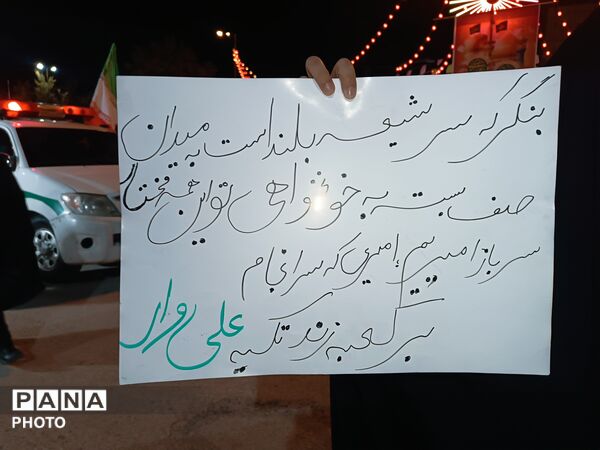 بنگر که سر شیعه بلند است به میدان
صف بسته به خونخواهی تو این همه یختار
سرباز امیریم، امیری که سرانجام
بر کعبه زند تکیه علی وار
PANA
PHOTO